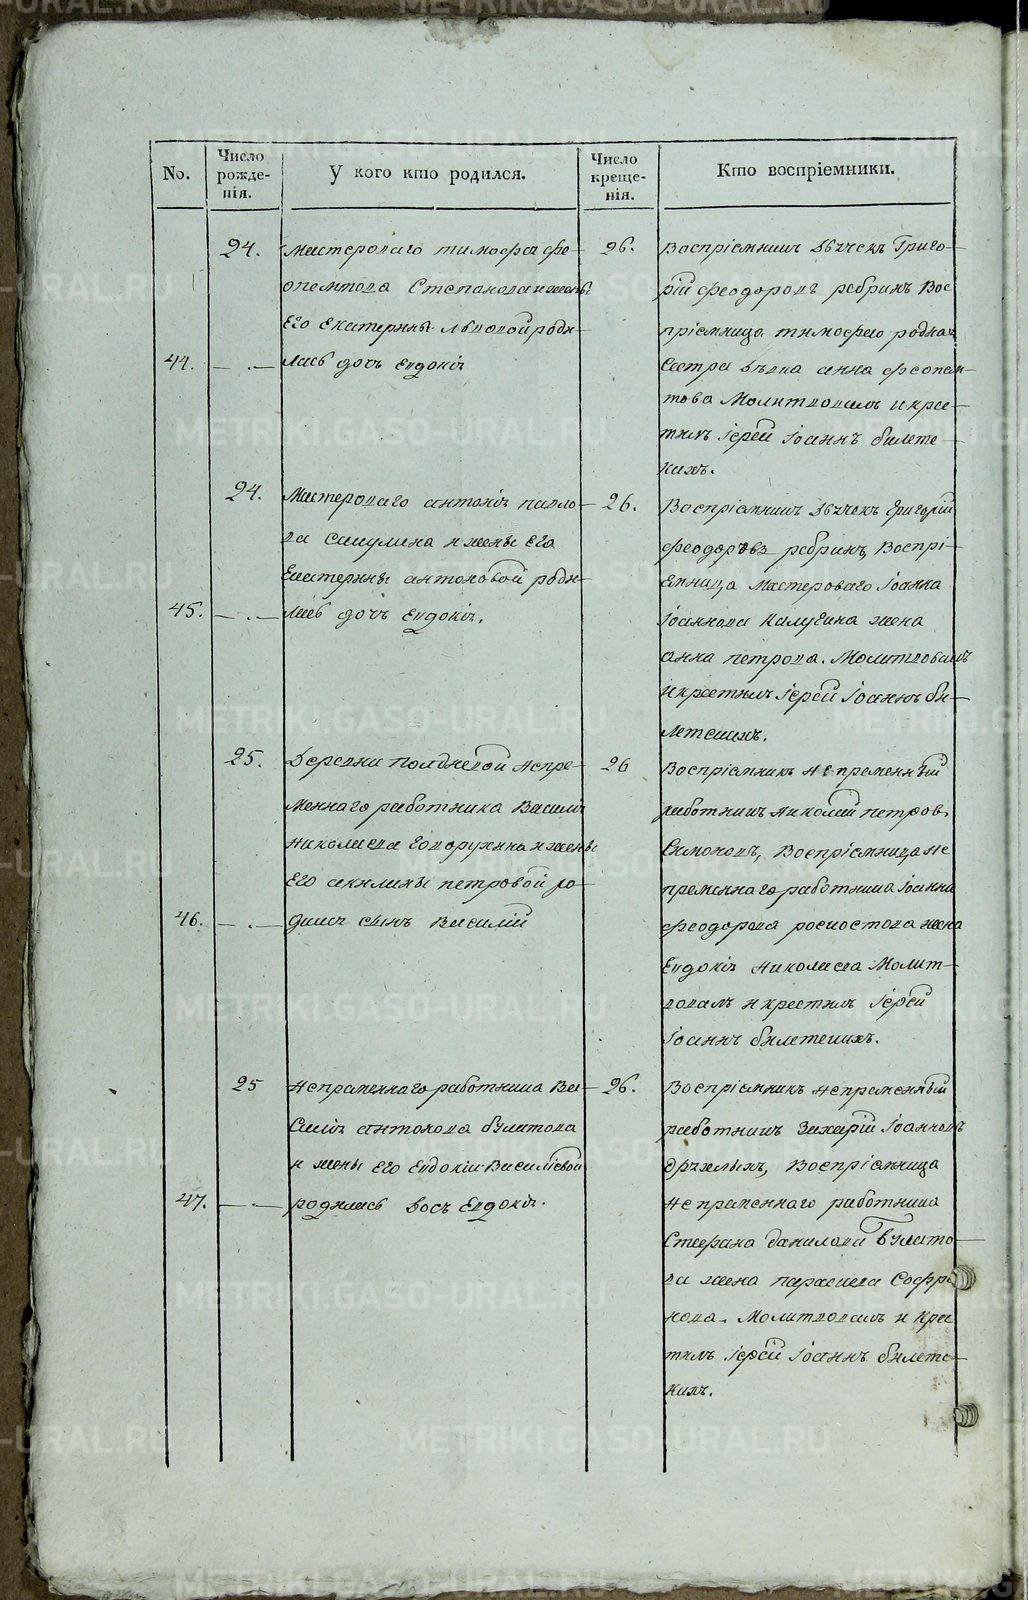 No.
Число рожде-нія.
У кого кто родился.
Число креще-нія.
Кто воспріемники.
24.
Мастероваго тимофея фе-
опемптова Степанова и жены
Его Екатерины львовой роди-
44.
лась дочь Евдокія
26.
Воспріемникъ Григо-
рій феодоровъ рябринъ Вос
пріемница тимофею родная
Сестра анна феопем-
това Молитвовалъ и крес-
тилъ Іерей Іоаннъ билетс-
кихъ.
24.
Мастероваго антонія павло-
ва и жены Его
Екатерины антоновой роди-
45.
лась дочь Евдокія.
26.
Воспріемникъ Григорій
феодоровъ рябринъ, Воспрі-
емница Мастероваго Іоанна
Іоаннова Калугина жена
анна петрова. Молитвовалъ
и крестилъ Іерей Іоаннъ би-
летскихъ.
25.
Деревни полдневой непре-
меннаго работника Василія
николаева и жены
Его акилины петровой ро-
46.
дился сынъ Василій
26
Воспріемникъ непременный
работникъ николай петровъ
Симоновъ, Воспріемница не
пременнаго работника Іоанна
феодорова жена
Евдокія николаева Молит-
вовалъ и крестилъ Іерей
Іоаннъ билетскихъ.
25
непременнаго работника Ва-
силія антонова булатова
и жены Его Евдокіи Василіевой
47.
родилась дочь Евдокія.
26.
Воспріемникъ непременный
работникъ Захарій Іоанновъ
Воспріемница
непременнаго работника
Стефана данилова Булато-
ва жена параскева Софро
нова. Молитвовалъ и крес
тилъ Іерей Іоаннъ билетс-
кихъ.
METRIKI.GASO-URAL.RU